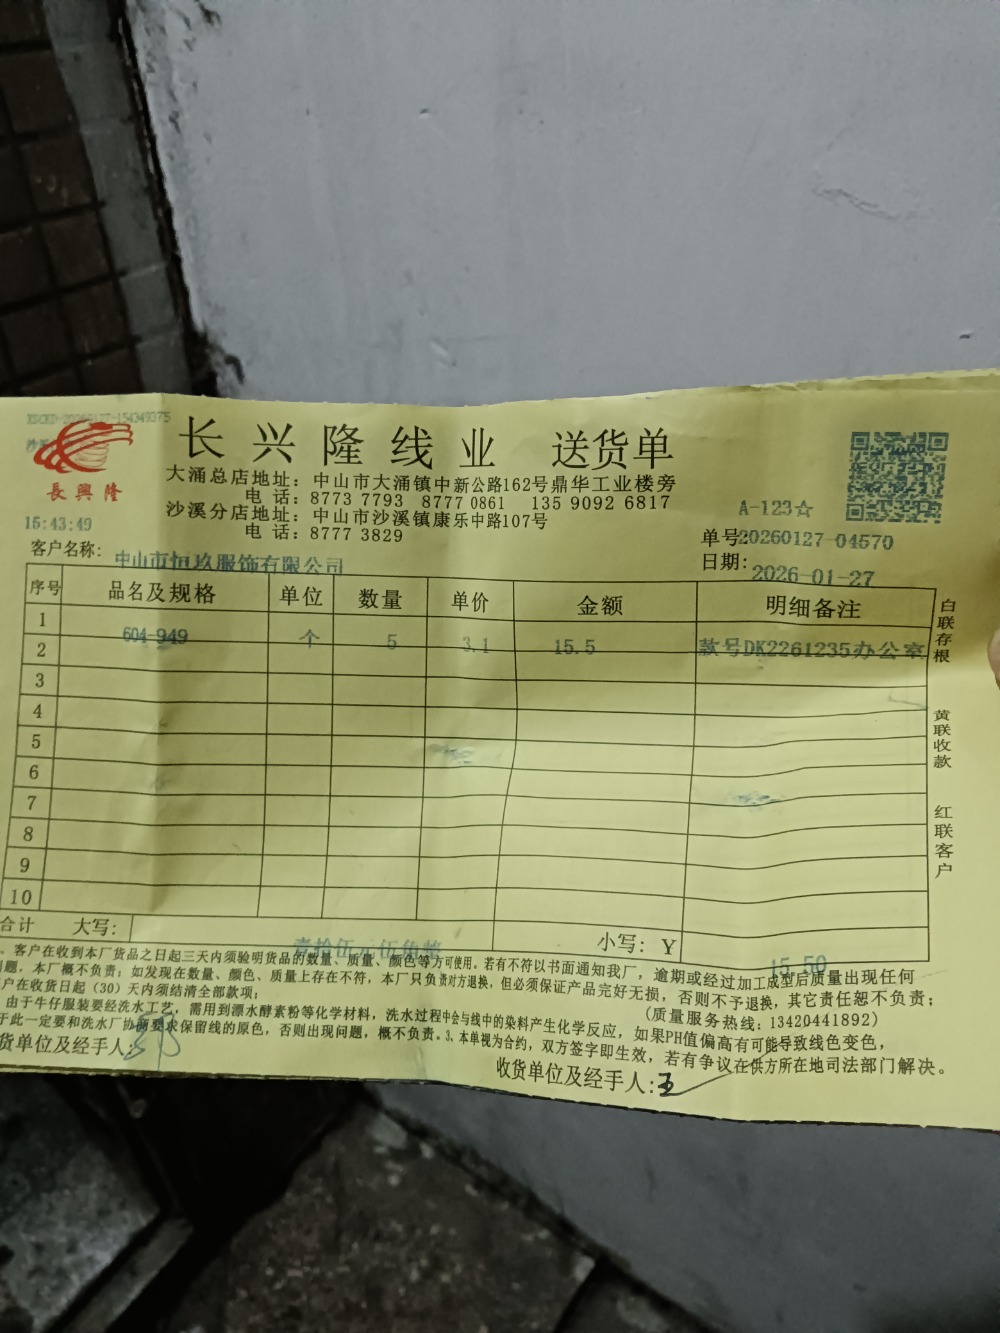 XSCKD-20260127-154349375
長興隆
长兴隆线业 送货单
大涌总店地址：中山市大涌镇中新公路162号鼎华工业楼旁
电 话：8773 7793 8777 0861 135 9092 6817
沙溪分店地址：中山市沙溪镇康乐中路107号
电 话：8777 3829
A-123☆
15:43:49
单号:20260127-04570
客户名称: 中山市恒玖服饰有限公司
日期: 2026-01-27
序号 品名及规格 单位 数量 单价 金额 明细备注
1 604-949 个 5 3.1 15.5 款号DK2261235办公室
2
3
4
5
6
7
8
9
10
合计 大写: 壹拾伍元伍角整 小写: Y 15.50
白联存根 黄联收款 红联客户
、客户在收到本厂货品之日起三天内须验明货品的数量、质量、颜色等方可使用。若有不符以书面通知我厂，逾期或经过加工成型后质量出现任何
问题，本厂概不负责；如发现在数量、颜色、质量上存在不符，本厂只负责对方退换，但必须保证产品完好无损，否则不予退换，其它责任恕不负责；
户在收货日起（30）天内须结清全部款项；
(质量服务热线: 13420441892)
由于牛仔服装要经洗水工艺，需用到漂水酵素粉等化学材料，洗水过程中会与线中的染料产生化学反应，如果PH值偏高有可能导致线色变色，
于此一定要和洗水厂协商要求保留线的原色，否则出现问题，概不负责。3、本单视为合约，双方签字即生效，若有争议在供方所在地司法部门解决。
货单位及经手人:
收货单位及经手人: 王